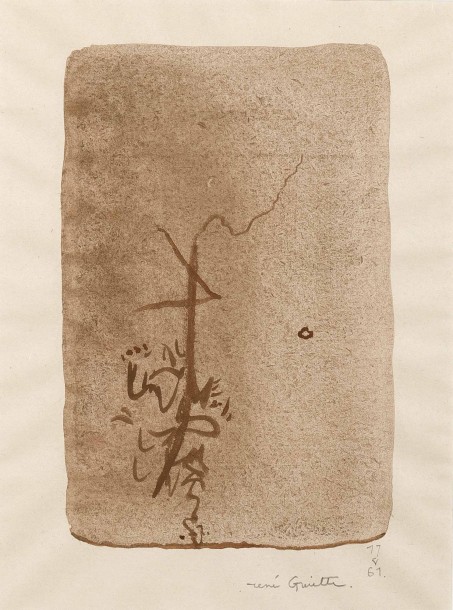 8
61.
rené Guiette.